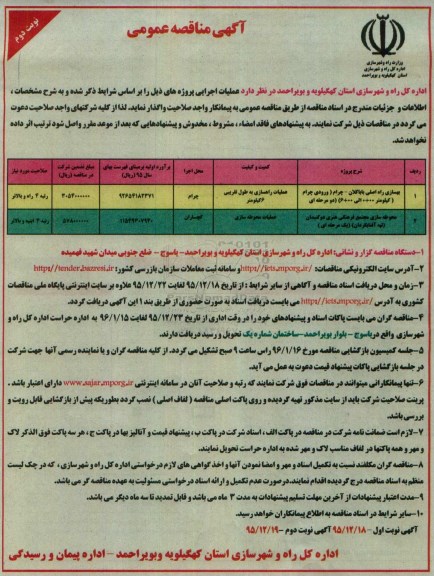 نوبت دوم
آگهی مناقصه عمومی
وزارت راه و شهرسازی
اداره کل راه و شهرسازی
استان کهگیلویه و بویراحمد
اداره کل راه و شهرسازی استان کهگیلویه و بویراحمد در نظر دارد عملیات اجرایی پروژه های ذیل را بر اساس شرایط ذکر شده و به شرح مشخصات ،
اطلاعات و جزئیات مندرج در اسناد مناقصه از طریق مناقصه عمومی به پیمانکار واجد صلاحیت واگذار نماید. لذا از کلیه شرکتهای واجد صلاحیت دعوت
می گردد در مناقصات ذیل شرکت نمایند. به پیشنهادهای فاقد امضاء ، مشروط ، مخدوش و پیشنهادهایی که بعد از موعد مقرر واصل شود ترتیب اثر داده
نخواهد شد.
ردیف شرح پروژه کمیت و کیفیت محل اجرا برآورد اولیه برمبنای فهرست بهای سال ۹۵ (ریال) مبلغ تضمین شرکت در مناقصه (ریال) صلاحیت مورد نیاز
۱ بهسازی راه اصلی باباکلان - چرام ( ورودی چرام ) کیلومتر ۰۰۰+۰ الی ۶۰۰۰+ (دو مرحله ای) عملیات راهسازی به طول تقریبی ۶کیلومتر چرام رتبه ۴ راه و بالاتر
۲ محوطه سازی مجتمع فرهنگی هنری دوگنبدان (یک مرحله ای) عملیات محوطه سازی گچساران رتبه ۴ ابنیه و بالاتر
۱-دستگاه مناقصه گزار و نشانی: اداره کل راه و شهرسازی استان کهگیلویه و بویراحمد - یاسوج - ضلع جنوبی میدان شهید فهمیده
۲-آدرس سایت الکترونیکی مناقصات: http://iets.mporg.ir/ و سامانه ثبت معاملات سازمان بازرسی کشور: http://tender.bazresi.ir
۳-زمان و محل دریافت اسناد مناقصه و آگاهی از سایر شرایط : از تاریخ ۹۵/۱۲/۱۸ لغایت ۹۵/۱۲/۲۲ علاوه بر سایت اینترنتی پایگاه ملی مناقصات
کشوری به آدرس http://iets.mporg.ir/ می بایست دریافت اسناد به صورت حضوری از طریق بند ۱ این آگهی دریافت گردد.
۴-مناقصه گران می بایست پاکات اسناد و پیشنهادهای خود را در وقت اداری از تاریخ ۹۵/۱۲/۲۳ لغایت ۹۶/۱/۱۵ به اداره حراست اداره کل راه و
شهرسازی واقع در یاسوج - بلوار بویراحمد-ساختمان شماره یک تحویل و رسید دریافت دارند.
۵-جلسه کمیسیون بازگشایی مناقصه مورخ ۹۶/۱/۱۶ راس ساعت ۹ صبح تشکیل می گردد. از کلیه مناقصه گران و یا نماینده رسمی آنها جهت شرکت
در جلسه بازگشایی پاکات پیشنهاد قیمت دعوت به عمل می آید.
۶-تنها پیمانکارانی میتوانند در مناقصات فوق شرکت نمایند که رتبه و صلاحیت آنان در سامانه اینترنتی www.sajar.mporg.ir دارای اعتبار باشد .
پرینت صلاحیت شرکت باید از سایت مذکور تهیه گردیده و روی پاکت اصلی مناقصه ( لفاف اصلی ) نصب گردد بطوریکه پیش از بازگشایی قابل رویت و
بررسی باشد.
۷-لازم است ضمانت نامه شرکت در مناقصه در پاکت الف ، اسناد شرکت در پاکت ب ، پیشنهاد قیمت و آنالیز بها در پاکت ج ، هر سه پاکت فوق الذکر لاک
و مهر و همه پاکتها در لفاف مناسب لاک و مهر شده به اداره حراست تحویل نمایند.
۸-مناقصه گران مکلفند نسبت به تکمیل اسناد و مهر و امضا نمودن آنها و اخذ گواهی های لازم درخواستی اداره کل راه و شهرسازی ، که در چک لیست
منظم به اسناد مناقصه درج گردیده اقدام نمایند. در صورت عدم تکمیل و ارائه اسناد درخواستی مسئولیت به عهده مناقصه گر می باشد.
۹-مدت اعتبار پیشنهادات از آخرین مهلت تسلیم پیشنهادات به مدت ۳ ماه می باشد و قابل تمدید تا سه ماه دیگر می باشد.
۱۰-سایر شرایط در اسناد مناقصه به اطلاع پیمانکاران خواهد رسید.
آگهی نوبت اول - ۹۵/۱۲/۱۸ آگهی نوبت دوم -۹۵/۱۲/۱۹
اداره کل راه و شهرسازی استان کهگیلویه وبویراحمد - اداره پیمان و رسیدگی